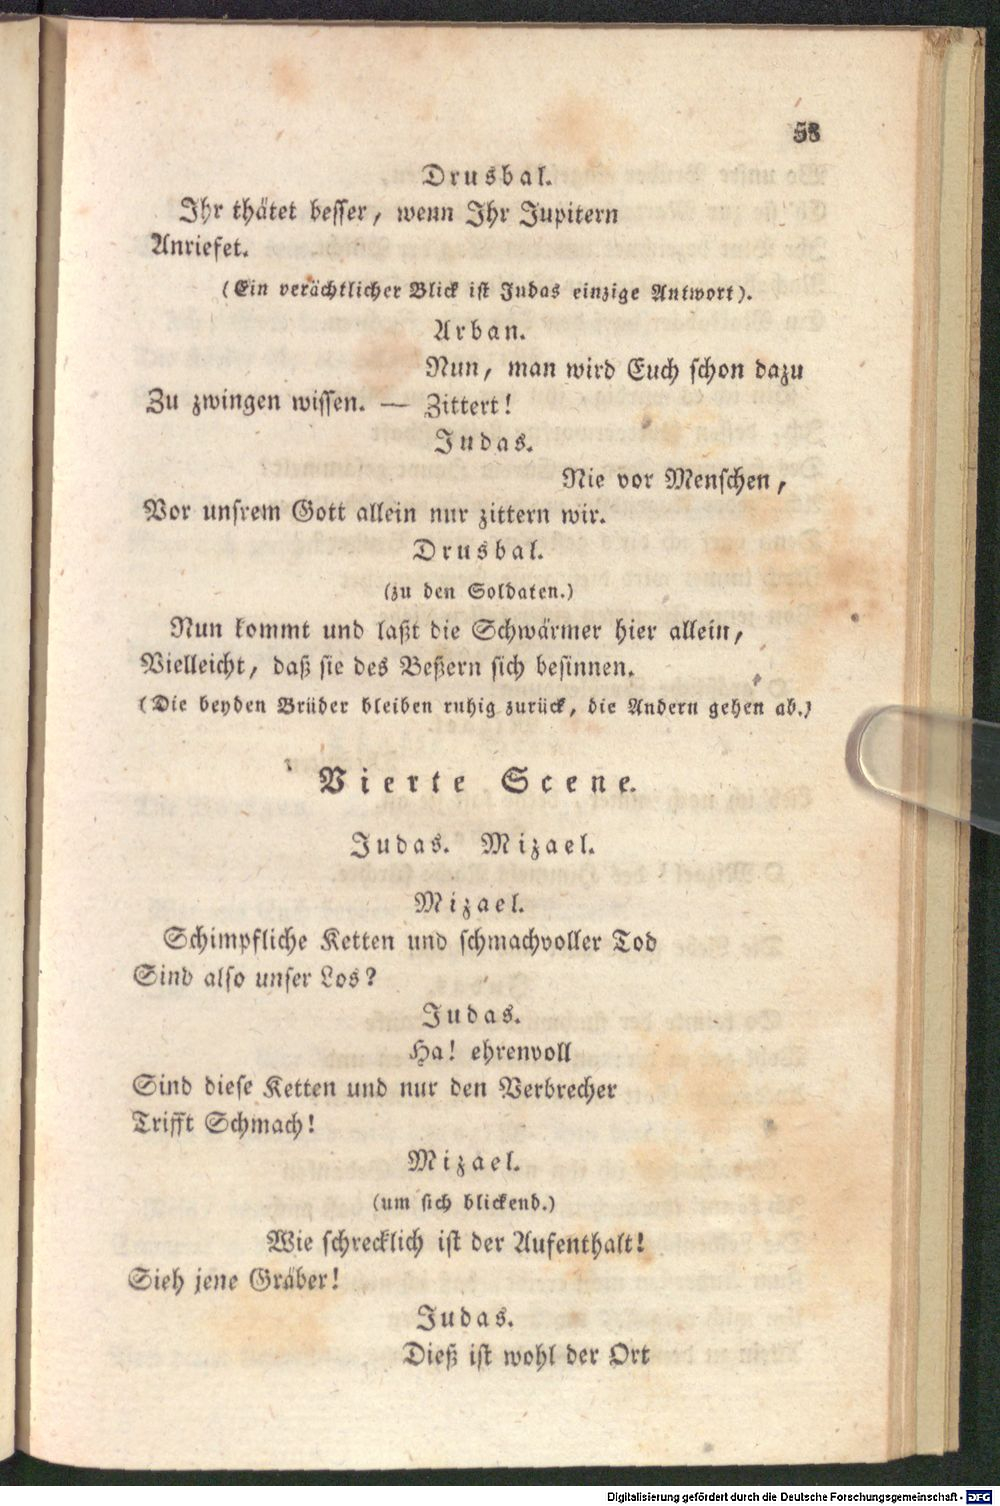 53
Drusbal.
Ihr thätet besser, wenn Ihr Jupitern
Anriefet.
(Ein verächtlicher Blick ist Judas einzige Antwort).
Arban.
Nun, man wird Euch schon dazu
Zu zwingen wissen. — Zittert!
Judas.
Nie vor Menschen,
Vor unsrem Gott allein nur zittern wir.
Drusbal.
(zu den Soldaten.)
Nun kommt und laßt die Schwärmer hier allein,
Vielleicht, daß sie des Beßern sich besinnen.
(Die beyden Brüder bleiben ruhig zurück, die Andern gehen ab.)
Vierte Scene.
Judas. Mizael.
Mizael.
Schimpfliche Ketten und schmachvoller Tod
Sind also unser Los?
Judas.
Ha! ehrenvoll
Sind diese Ketten und nur den Verbrecher
Trifft Schmach!
Mizael.
(um sich blickend.)
Wie schrecklich ist der Aufenthalt!
Sieh jene Gräber!
Judas.
Dieß ist wohl der Ort
Digitalisierung gefördert durch die Deutsche Forschungsgemeinschaft - DFG